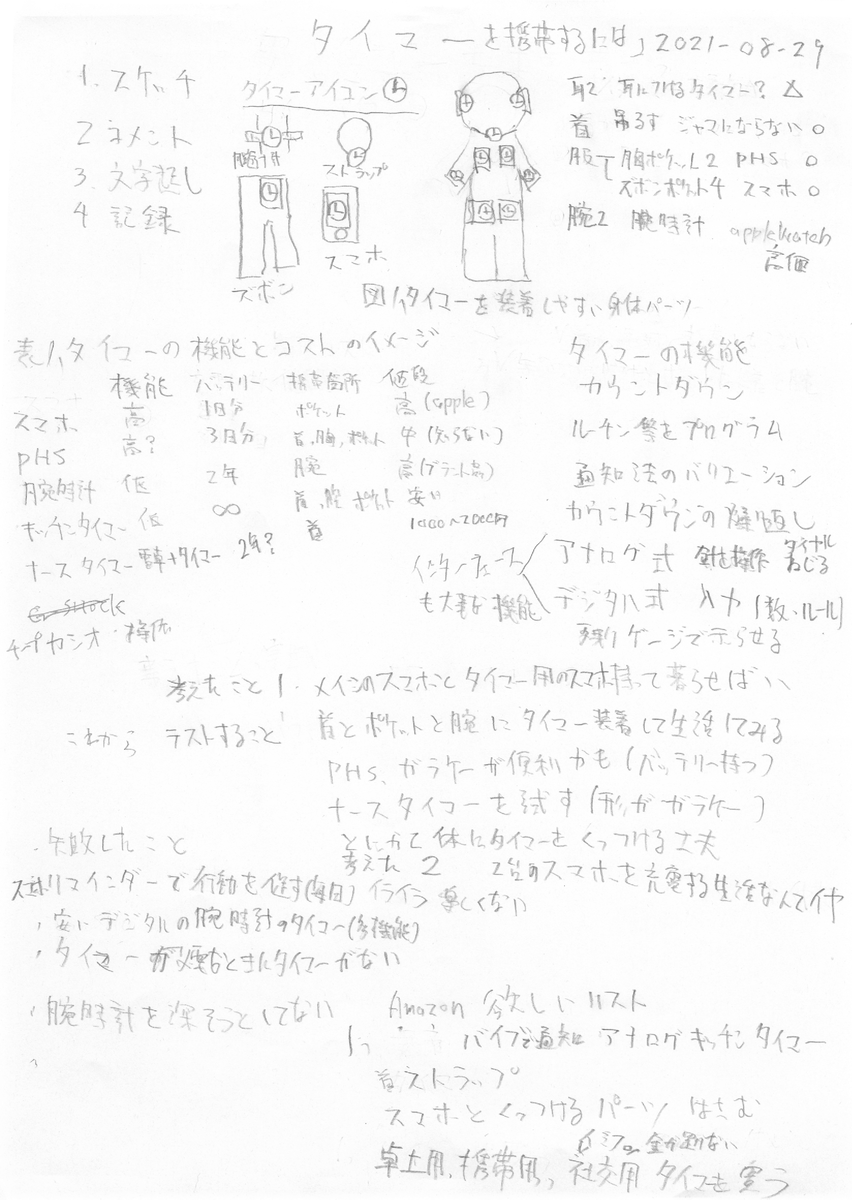 タイマーを携帯するには」2021-08-29
1. スケッチ
2 コメント
3. 文字起し
4 記録
タイマーアイコン
腕時計
ストラップ
ズボン
スマホ
耳2 耳につけるタイマー? △
首 吊るす ジャマにならない ○
服 胸ポケット2 PHS ○
ズボンポケット4 スマホ ○
腕2 腕時計 applewatch
高価
図1,タイマーを装着しやすい身体パーツ
表1,タイマーの機能とコストのイメージ
機能 バッテリー 携帯箇所 値段
スマホ 高 1日分 ポケット 高(apple)
PHS 高? 3日分 首,胸,ポケット 中(知らない)
腕時計 低 2年 腕 高(ブランド高)
キッチンタイマー 低 ∞ 首,腰 ポケット 安い
ナースタイマー 電卓+タイマー 2年? 首 1000〜2000円
G-Shock
チープカシオ
タイマーの機能
カウントダウン
ルーチン等をプログラム
通知法のバリエーション
カウントダウンの繰り返し
インターフェース
も大事な機能
アナログ式 針を操作 ダイヤル ねじる
デジタル式 入力(数・ルール)
残りゲージで示らせる
考えたこと1. メインのスマホとタイマー用のスマホ持って暮らせばいい
これから テストすること 首とポケットと腕にタイマー装着して生活してみる
PHS、ガラケーが便利かも(バッテリー持つ)
ナースタイマーを試す(形がガラケー)
とにかく体にタイマーをくっつける工夫
・失敗したこと
考えた2 2台のスマホを充電する生活なんてイヤ
スマホリマインダーで行動を促す(毎日) イライラ 楽しくない
・安いデジタルの腕時計のタイマー(多機能)
・タイマーが必要なときにタイマーがない
・腕時計を探そうとしてない
Amazon 欲しいリスト
バイブで通知 アナログキッチンタイマー
首ストラップ
スマホとくっつけるパーツ はさむ
金が足りない
卓上用、携帯用、社交用 タイマを買う